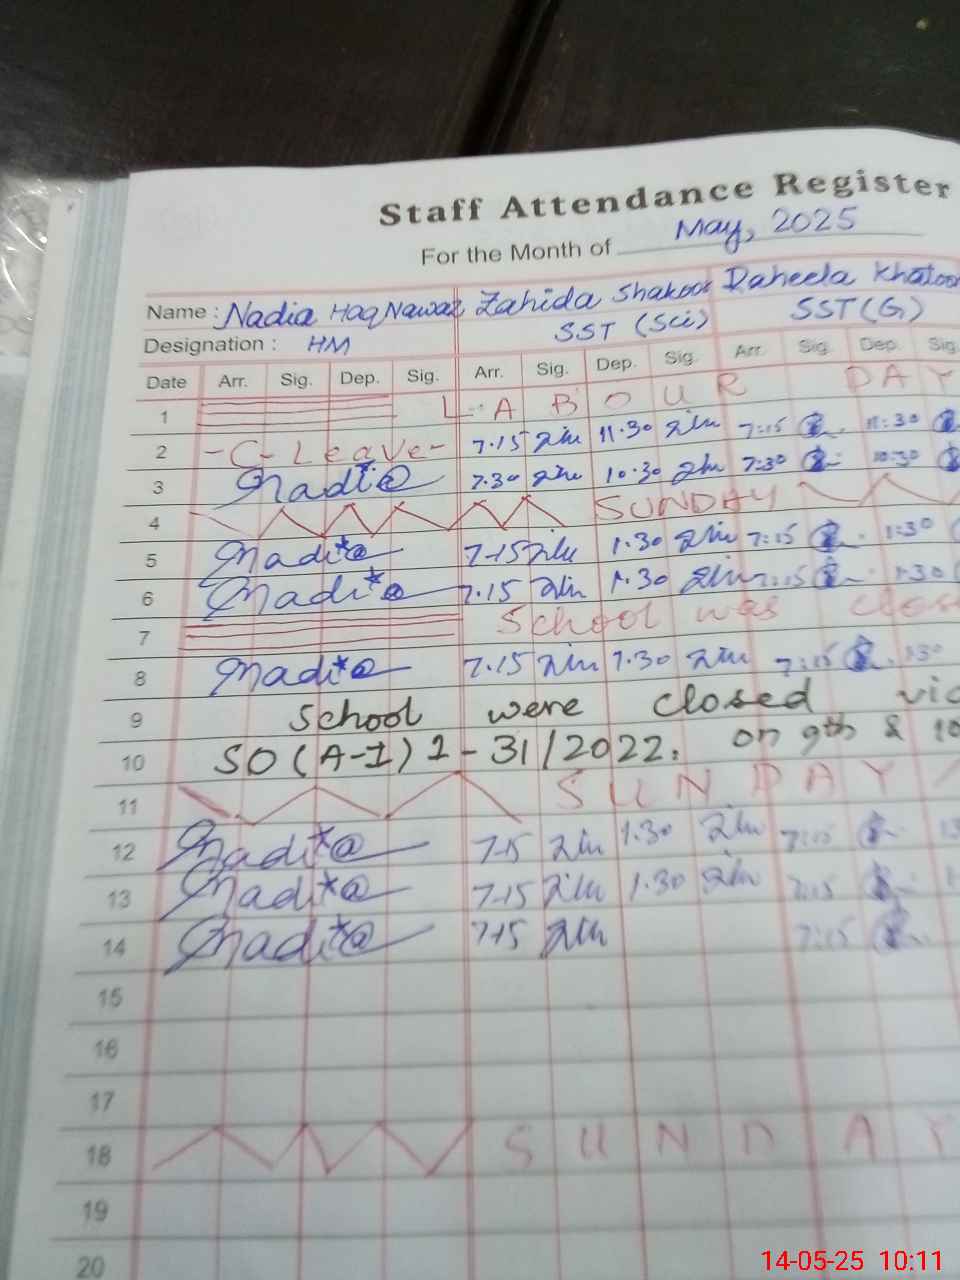 Staff Attendance Register
For the Month of May, 2025
Name : Nadia Haq Nawaz Zahida Shakoor Raheela Khatoon
Designation : HM SST (Sci) SST (G)
Date Arr. Sig. Dep. Sig. Arr. Sig. Dep. Sig. Arr. Sig. Dep. Sig.
1 LABOUR DAY
2 -C-Leave- 7.15 11.30 7:15 11:30
3 Nadia 7.30 10.30 7:30 10:30
4 SUNDAY
5 Nadia 7.15 1.30 7:15 1:30
6 Nadia 7.15 1.30 7:15 1:30
7 School was
8 Nadia 7.15 1.30 7:15 1:30
9 School were closed
10 SO (A-I) 1-31/2022. on 9th & 10
11 SUNDAY
12 Nadia 7.15 1.30 7:15
13 Nadia 7.15 1.30 7:15
14 Nadia 7.15 7:15
15
16
17
18 SUNDAY
19
20
14-05-25 10:11